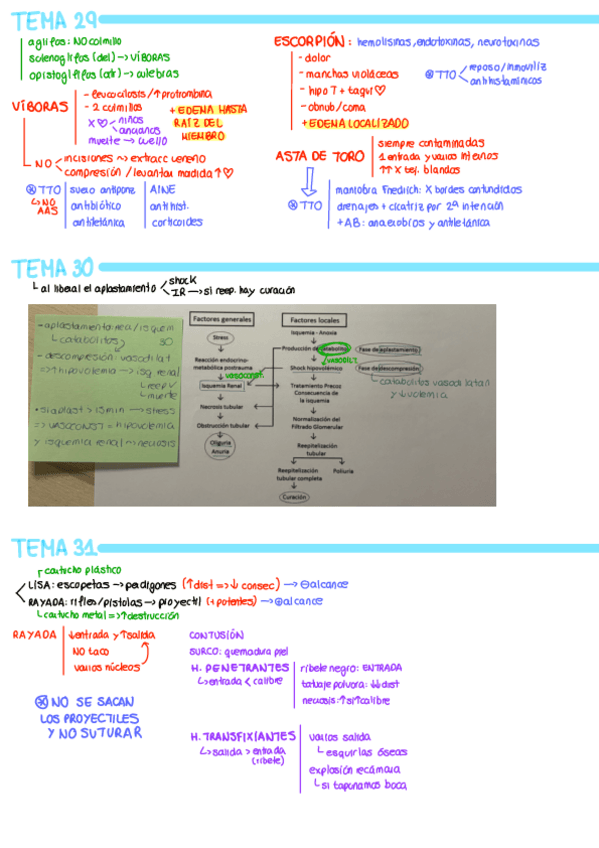 TEMA 29
aglifos: NO colmillo
solenoglifos (del) → VÍBORAS
opistoglifos (atr) → culebras
VÍBORAS
- leucocitosis/↑protrombina
- 2 colmillos
X♡ niños
ancianos
muerte → cuello
+ EDEMA HASTA
RAÍZ DEL
MIEMBRO
NO
incisiones → extracc veneno
compresión / levantar madida ↑♡
⊗TTO
↳ NO
AAS
suero antiponz
antibiótico
antitetánica
AINE
antihist.
corticoides
ESCORPIÓN: hemolisinas, endotoxinas, neurotoxinas
- dolor
- manchas violáceas
- hipo T + taqui♡
- obnub/coma
+ EDEMA LOCALIZADO
⊗TTO
reposo/inmoviliz
antihistamínicos
ASTA DE TORO
siempre contaminadas
1 entrada y varios internos
↑↑ X tej. blandos
⊗TTO
maniobra Friedrich: X bordes contundidos
drenajes + cicatriz por 2ª intención
+ AB: anaerobios y antitetánica
TEMA 30
↳ al liberal el aplastamiento
shock
IR → si reep. hay curación
- aplastamiento: nea/isquem
↳ catabolitos
30
- descompresión: vasodilat
⇒ ↑hipovolemia → isq renal
↳ reep ✓
↳ muerte
• si aplast > 15min → stress
⇒ vasoconst = hipovolemia
y isquemia renal → necrosis
Factores generales
Stress
Reacción endocrino-
metabólica postrauma
VASOCONST.
Isquemia Renal
Necrosis tubular
Obstrucción tubular
Oliguria
Anuria
Factores locales
Isquemia - Anoxia
Producción de catabolitos
Fase de aplastamiento
VASODILT.
Shock hipovolémico
Fase de descompresión
catabolitos vasodilatan
y ↓volemia
Tratamiento Precoz
Consecuencia de
la isquemia
Normalización del
Filtrado Glomerular
Reepitelización
tubular
Reepitelización
tubular completa
Poliuria
Curación
TEMA 31
cartucho plástico
LISA: escopetas → perdigones (↑dist => ↓ consec) → ⊖alcance
RAYADA: rifles/pistolas → proyectil (+potentes) → ⊕alcance
↳ cartucho metal => ↑destrucción
RAYADA
↓entrada y ↑salida
NO taco
varios núcleos
⊗ NO SE SACAN
LOS PROYECTILES
Y NO SUTURAR
CONTUSIÓN
SURCO: quemadura piel
H. PENETRANTES
↳ entrada < calibre
ribete negro: ENTRADA
tatuaje pólvora: ↓↓dist
necrosis: ↑si↑calibre
H. TRANSFIXIANTES
↳ salida > entrada
(ribete)
varios salida
↳ esquirlas óseas
explosión recámara
↳ si taponamos boca